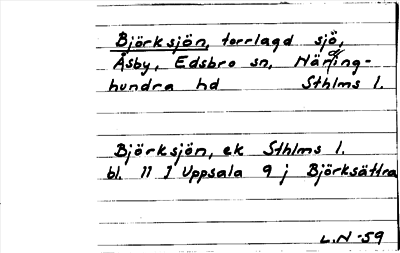 Björksjön, torrlagd sjö,
Åsby, Edsbro sn, Närding-
hundra hd Sthlms l.
Björksjön, ek Sthlms l.
bl. 11 I Uppsala 9 j Björksättra
L.N -59